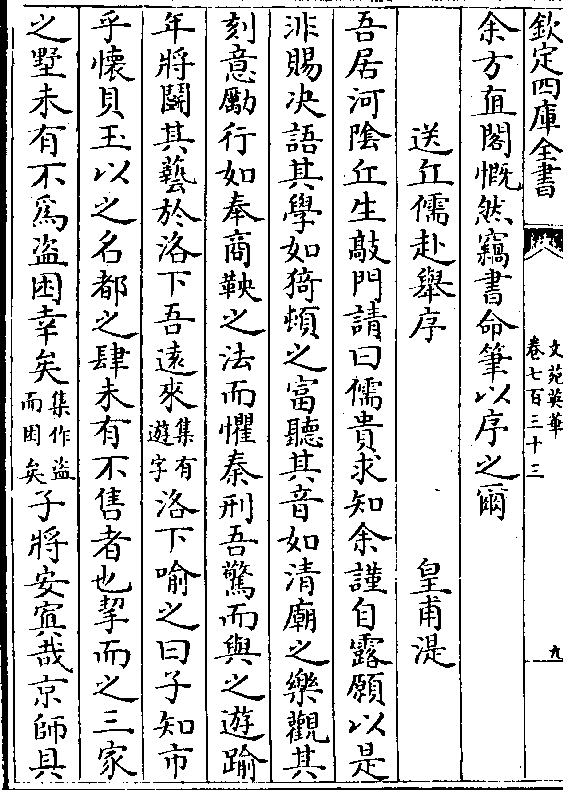 欽定四庫全書
文苑英華
卷七百三十三
九
余方直閣慨然竊書命筆以序之爾
送丘儒赴舉序 皇甫湜
吾居河陰丘生敲門請曰儒貴求知余謹自露願以是
非賜決語其學如猗頓之富聽其音如清廟之樂觀其
刻意勵行如奉商鞅之法而懼秦刑吾驚而與之遊踰
年將鬭其藝於洛下吾遠來集有遊字洛下喻之曰子知市
乎懷貝玉以之名都之肆未有不售者也挈而之三家
之墅未有不爲盜困幸矣集作盜而困矣子將安寘哉京師具